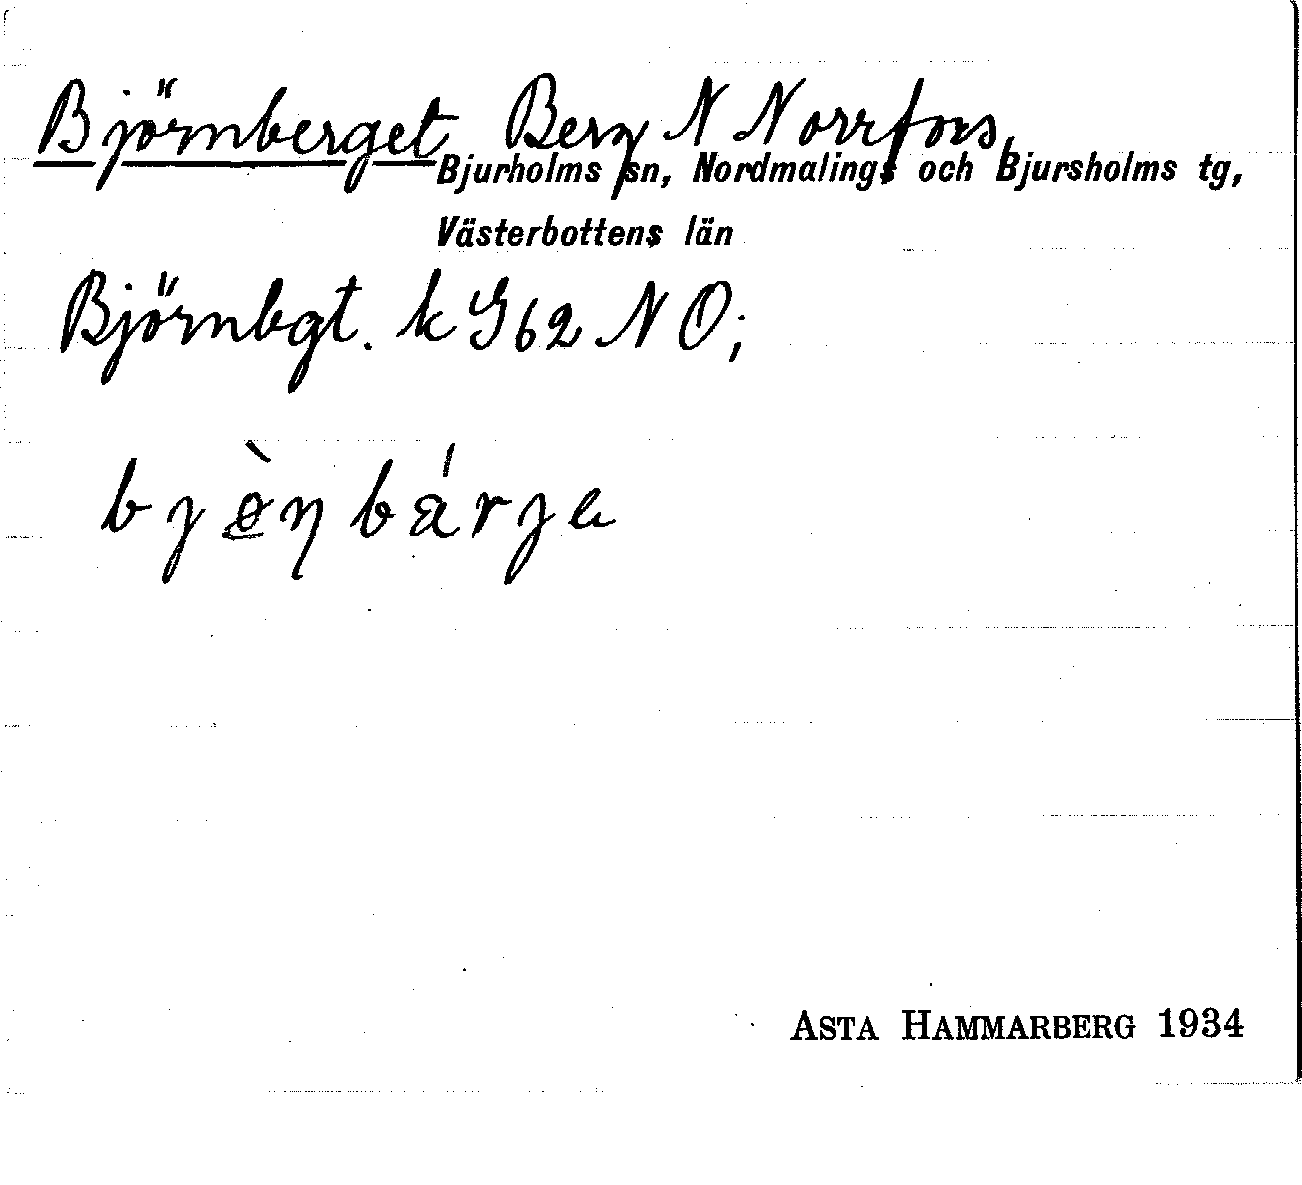 Björnberget Berg N Norrfors,
Bjurholms sn, Nordmalings och Bjursholms tg,
Västerbottens län
Björnbgt. k G62 NO;
bjø̀ŋbárje
ASTA HAMMARBERG 1934